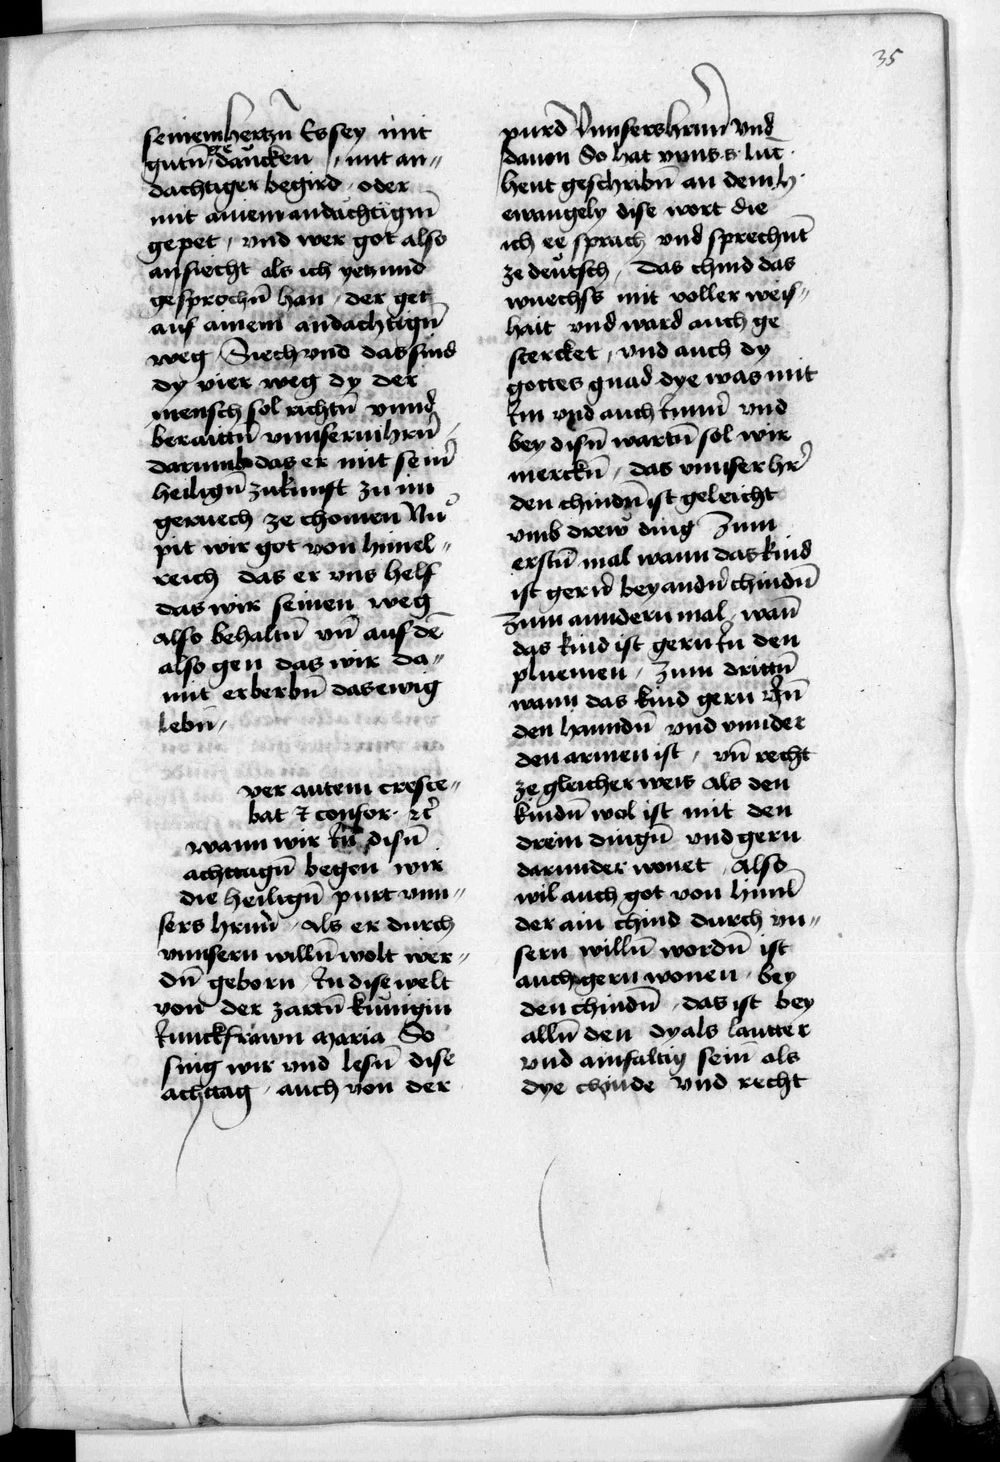 35
seinem hertzn̄ Es sey mit
gutn̄ gedäncken , mit an〃
dachtiger begird , oder
mit ainem andächtign̄
gepet , vnd wer got also
ansiecht als ich yetzund
gesprochn̄ han , der get
auf ainem andachtign̄
weg Siech vnd das sind
dy vier weg dy der
mensch sol richtn̄ vnnd
beraittn̄ vnnserm hrn̄ ,
darumb das er mit sein̄
heilign̄ zukunft zu im
geruech ze chomen Nu
pit wir got von himel〃
reich das er vns helf
das wir seinen weg
also behaltn̄ vn̄ auf dē
also gen das wir da〃
mit erberbn̄ das ewig
lebn̄ ,
ver autem cresce〃
bat ⁊ confor · ⁊c̄
wann wir Jn̄ disn̄
achttagn̄ begen wir
die heilign̄ purt vnn〃
sers hrnn̄ , als er durch
vnnsern willn̄ wolt wer〃
dn̄ geborn , Jn dise welt
von der zartn̄ kunigin
Junckfrawn Maria So
sing wir vnd lesn̄ dise
achttag , auch von der
purd Vnnsers hrnn̄ vnd
dauon So hat vnns s. luc̄ ·
heut geschribn̄ an dem h·
ewangely dise wort die
ich ee sprach vnd sprechnt̄
ze deutsch , Das chind das
wuechss mit voller weis〃
hait vnd ward auch ge
stercket , vnd auch dy
gottes gnad dye was mit
Jm vnd auch Jnnn̄ vnd
bey disn̄ wartn̄ sol wir
merckn̄ , das vnnser hr̄
den chindn̄ ist geleicht
vmb drew ding Zum
erstn̄ mal wann das kind
ist gern̄ bey andn̄ chindn̄
Zum anndern mal , wan̄
das kind ist gern Jn den
pluemen , Zum drittn̄
wann das kind gern Jn̄
den hanndn̄ vnd vnnder
den armen ist , vn̄ recht
ze gleicher weis als den
kindn̄ wol ist mit den
drein dingn̄ vnd gern
darunder wonet , Also
wil auch got von himl̄
der ain chind durch vn〃
sern willn̄ wordn̄ ist
auch gern wonen , bey
den chindn̄ , das ist bey
alln̄ den dy als lautter
vnd ainfaltig sein̄ als
dye chinde vnd recht